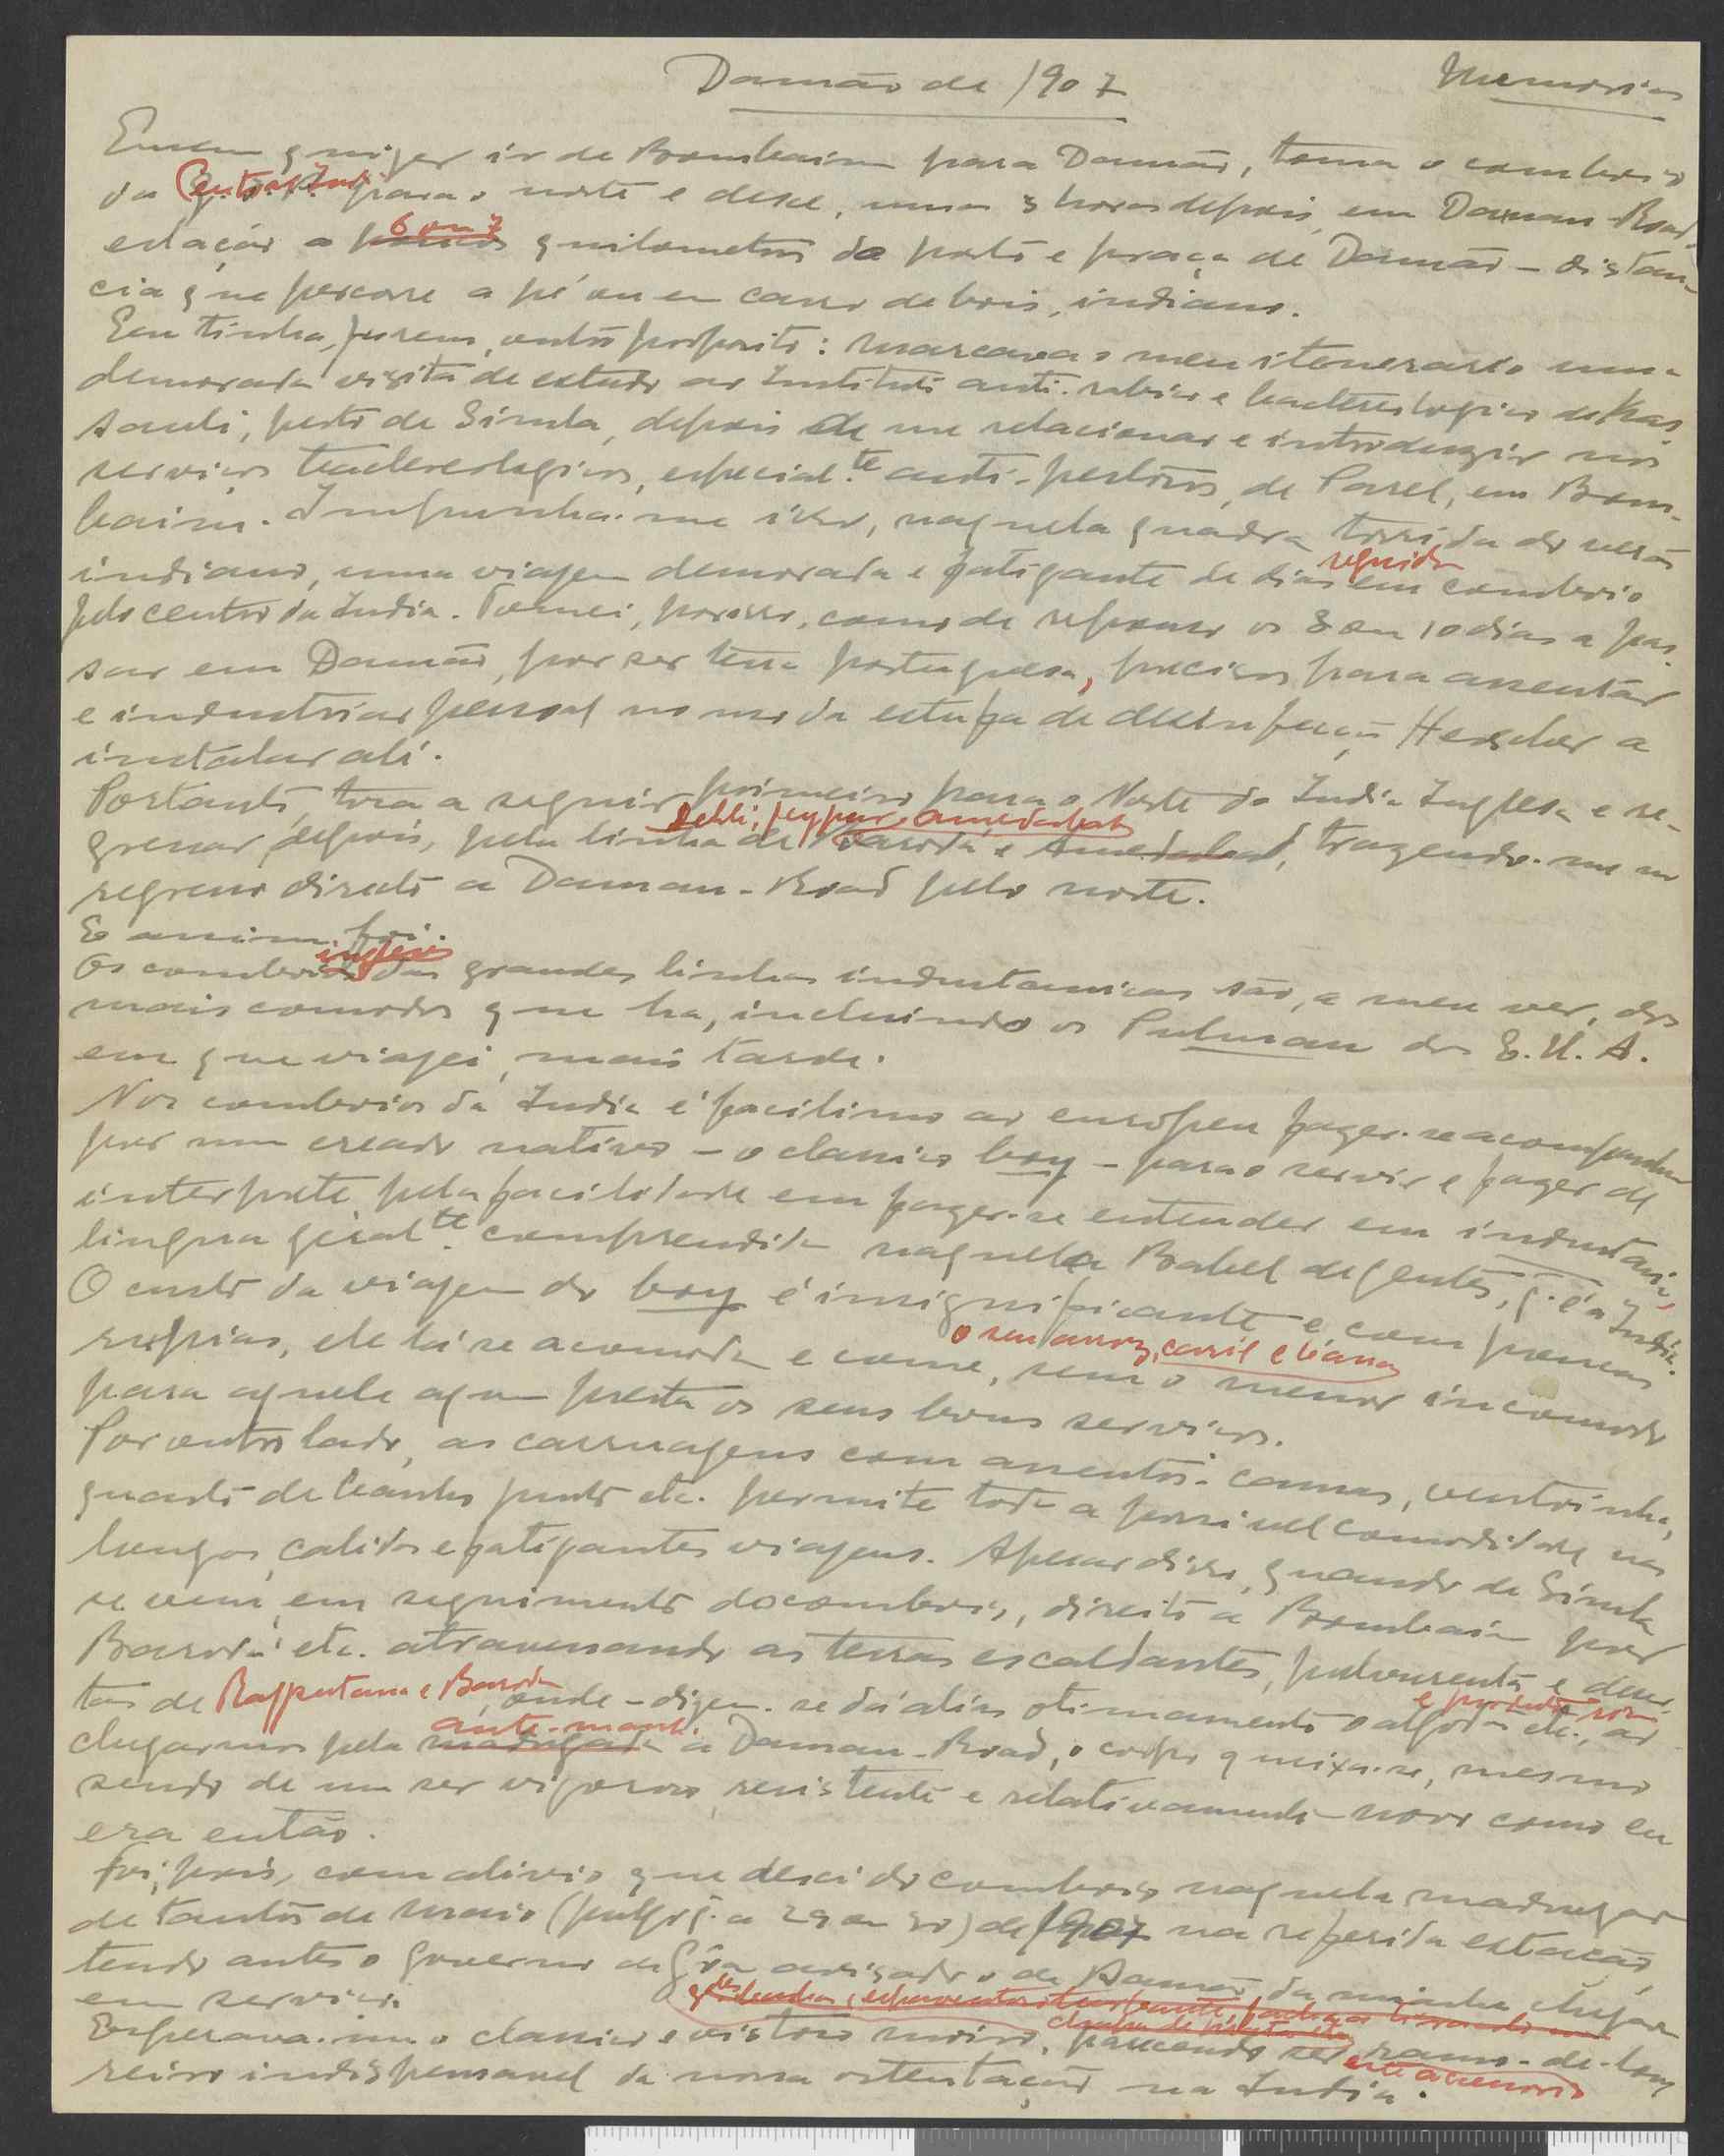 Damão de 1907
Memorias
Quem quizer ir de Bombaim para Damão, toma o comboio
da Central Ind. para o norte e desce, umas 3 horas depois, em Daman-Road,
estação a poucos 6 ou 7 quilometros do porto e praça de Damão – distan-
cia que percorre a pé ou em carro de bois, indiano.
Eu tinha, porem, outro proposito: marcava o meu itenerario uma
demorada visita de estudo ao Instituto anti-rabico e bacteriologico de Kas-
sauli, perto de Simla, depois de me relacionar e introduzir nos
serviços bactereologicos, especialte anti-pestosos, de Parel, em Bom-
baim. Impunha-me isso, naquela quadra torrida do verão
indiano, uma viagem demorada e fatigante de dias seguidos em comboio
pelo centro da India. Tomei, por isso, como de repouso os 8 ou 10 dias a pas-
sar em Damão, por ser terra portuguesa, precisos para assentar
e industriar pessoal no uso da estufa de desinfeção a
instalar ali.
Portanto, tora a seguir primeiro para o Norte da India Inglesa e re-
gressar, depois, pela linha de Delli, Jeypur, Amedabad Baroda e Amedabad, trazendo-me no
regresso direto a Daman-Road pelo norte.
E assim foi.
Os comboios ingleses das grandes linhas industanicas são, a meu ver, dos
mais comodos que ha, incluindo os Pulman dos E. U. A.
em que viajei, mais tarde.
Nos comboios da India é facilimo ao europeu fazer-se acompanhar
por um creado nativo – o classico boy – para o servir e fazer de
interprete, pela facilidade em fazer-se entender em industani,
lingua geralte comprendida naquela Babel de gentes, q. é a India.
O custo da viagem do boy é insignificante e, com poucas
rupias, ele lá se acomoda e come, o seu arroz, caril e sem o menor incomodo
para aquele a quem presta os seus bons serviços.
Por outro lado, as carruagens com assentos-camas, ventoinha,
quarto de banho junto etc. permite toda a possivel comodidade nas
longas, calidas e fatigantes viagens. Apesar disso, quando de Simla
se vem, em seguimento do comboio, direito a Bombaim por
Baroda etc. atravessando as terras escaldantes, pulvurentas e deser-
tas de Rajputana e Baroda, onde – dizem – se dá alias otimamente o algodão etc., ao
chegarmos pela madrugada ante-manhã a Daman-Road, o corpo queixa-se, mesmo
sendo de um ser vigoroso, resistente e relativamente novo como eu
era então.
Foi, pois, com alivio que desci do comboio naquela madrugada
de tantos de Maio (julgo q. a 29 ou 30) de 1907 na referida estação,
tendo antes o Governo de Gôa avisado o de Damão da minha chegada
em serviço.
Esperava-me o classico e vistoso moiro, parecendo ser este acessorio
indispensavel da nossa ostentação na India.